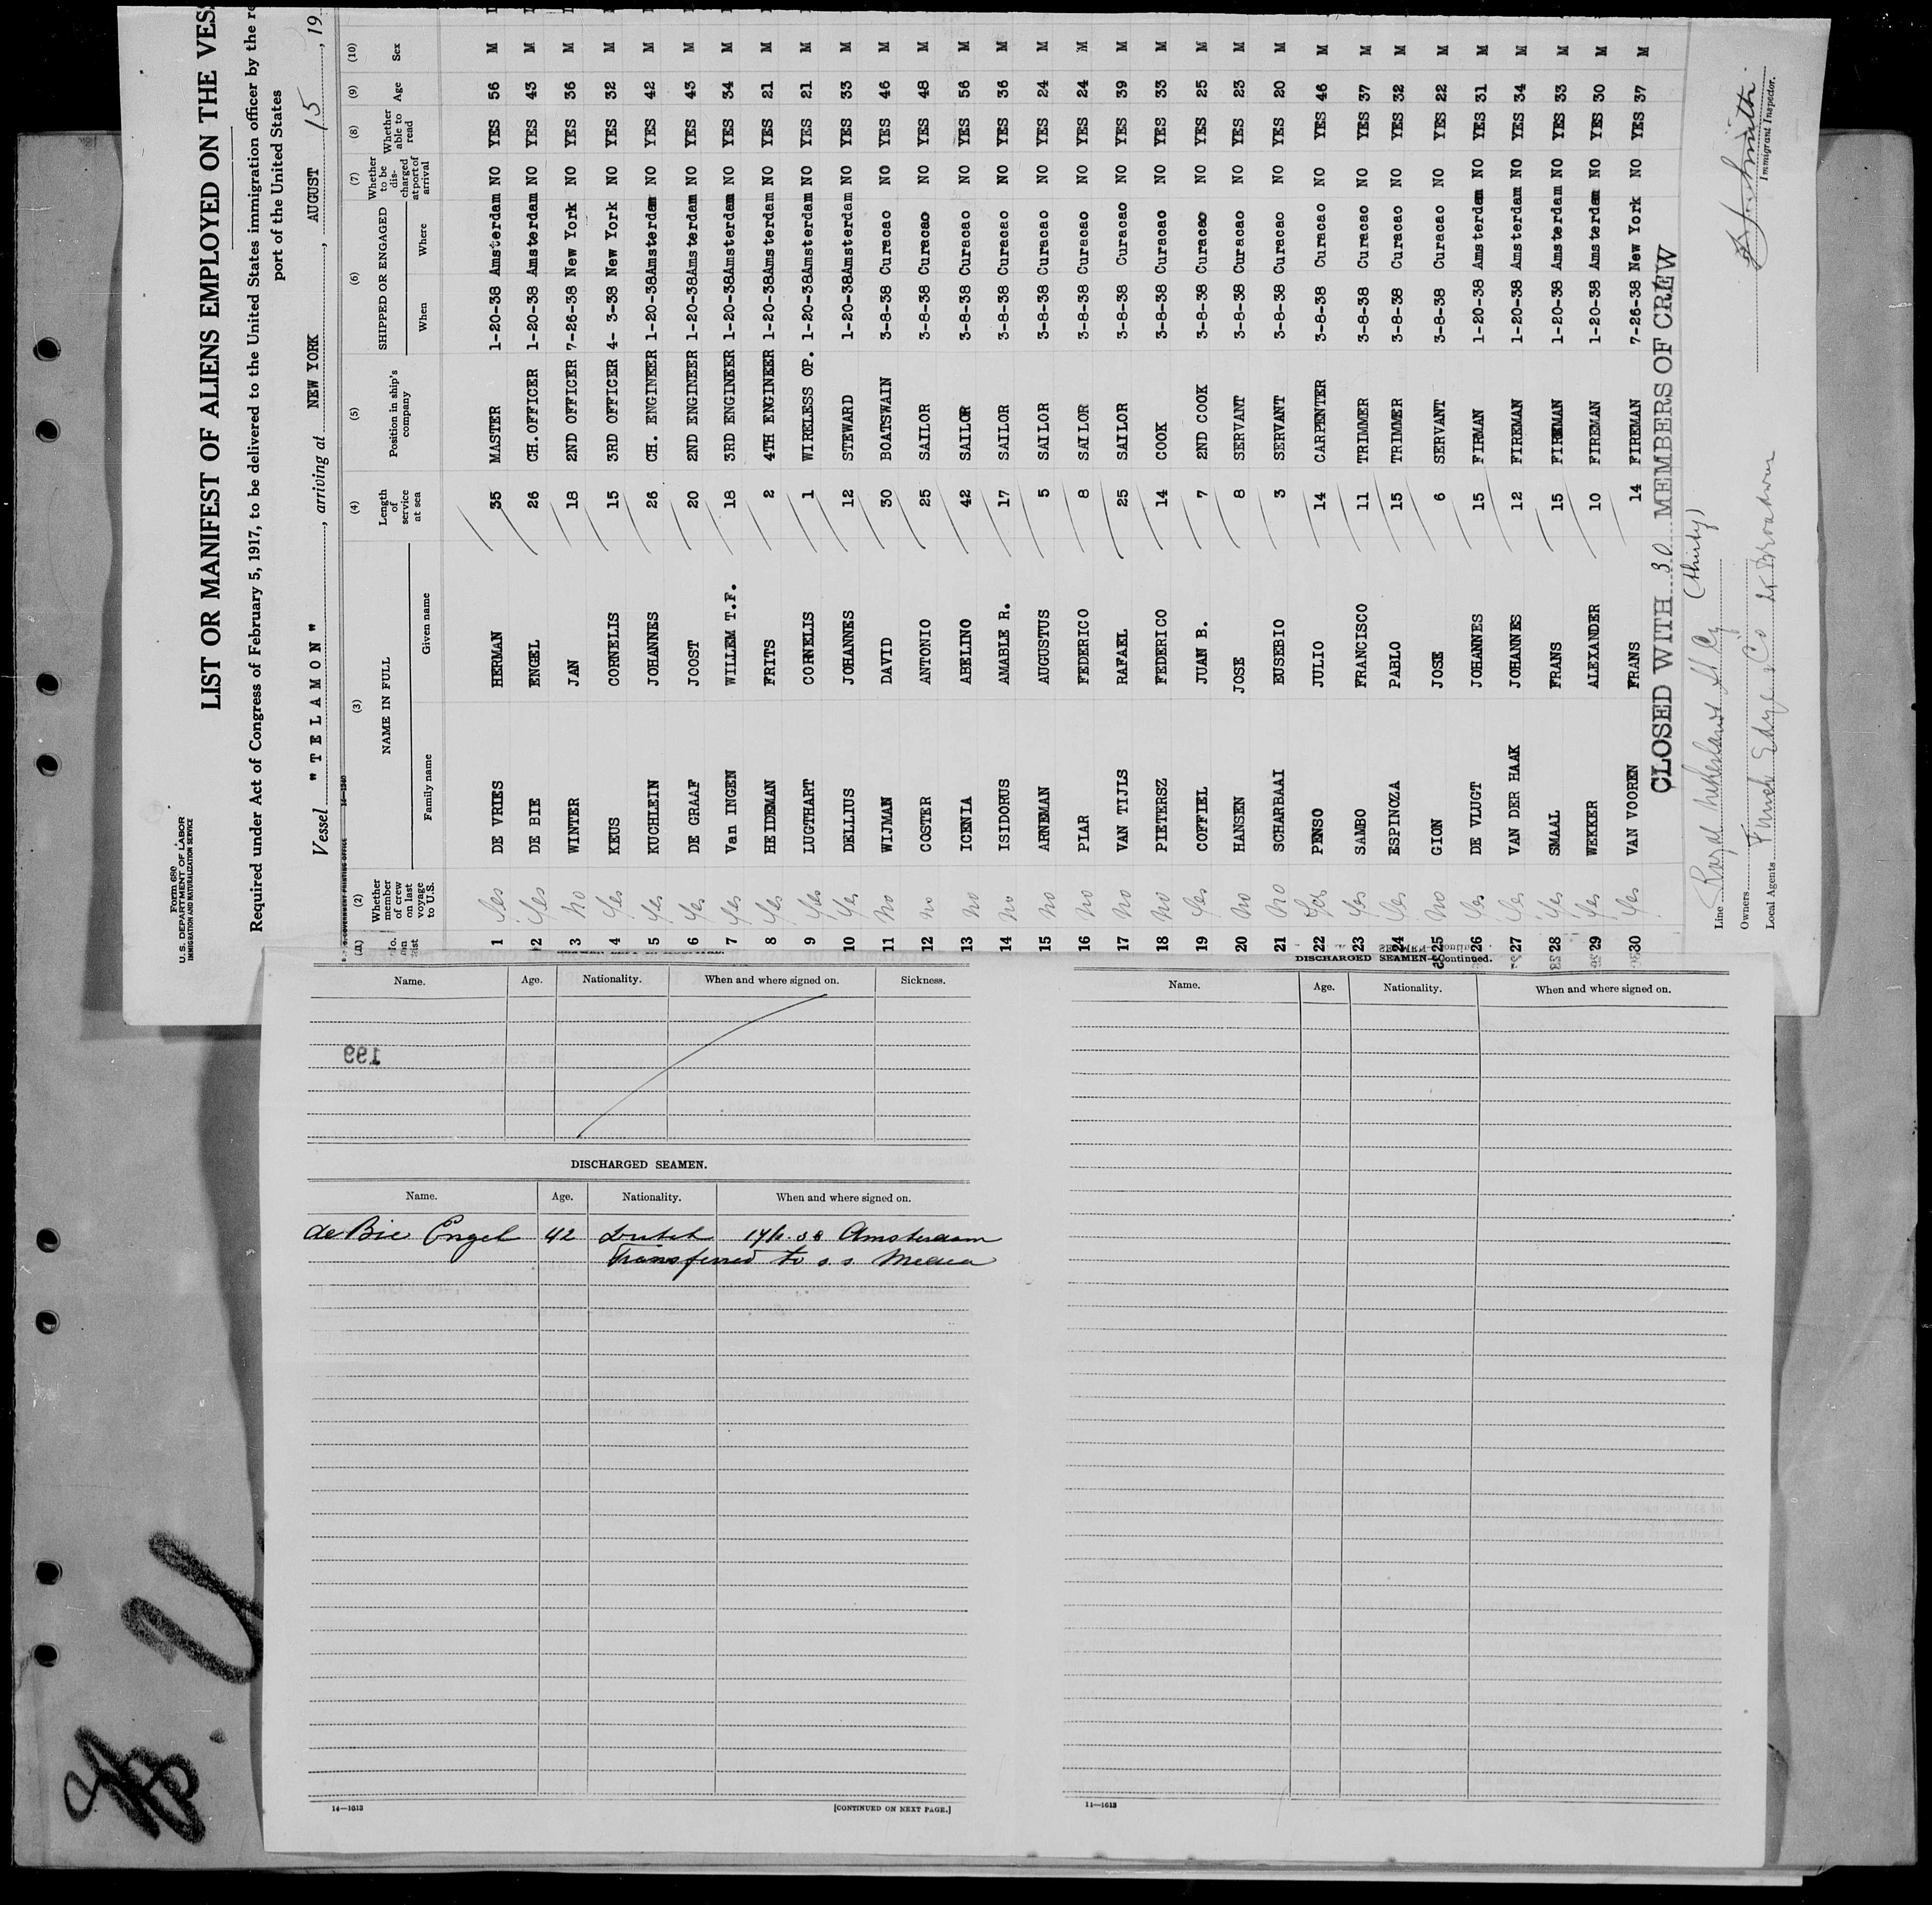 Form 680
U. S. DEPARTMENT OF LABOR
IMMIGRATION AND NATURALIZATION SERVICE
LIST OR MANIFEST OF ALIENS EMPLOYED ON THE VES
Required under Act of Congress of February 5, 1917, to be delivered to the United States immigration officer by the re
port of the United States
Vessel "TELAMON", arriving at NEW YORK, AUGUST 15, 19
(1) (2) (3) (4) (5) (6) (7) (8) (9) (10)
No. on list Whether member of crew on last voyage to U.S. NAME IN FULL Family name Given name Length of service at sea Position in ship's company SHIPPED OR ENGAGED When Where Whether to be discharged at port of arrival Whether able to read Age Sex
1 Yes DE VRIES HERMAN 35 MASTER 1-20-38 Amsterdam NO YES 56 M
2 Yes DE BIE ENGEL 26 CH.OFFICER 1-20-38 Amsterdam NO YES 43 M
3 No WINTER JAN 18 2ND OFFICER 7-26-38 New York NO YES 36 M
4 Yes KEUS CORNELIS 15 3RD OFFICER 4- 3-38 New York NO YES 32 M
5 Yes KUCHLEIN JOHANNES 26 CH. ENGINEER 1-20-38 Amsterdam NO YES 42 M
6 Yes DE GRAAF JOOST 20 2ND ENGINEER 1-20-38 Amsterdam NO YES 43 M
7 Yes Van INGEN WILLEM T.F. 18 3RD ENGINEER 1-20-38 Amsterdam NO YES 34 M
8 Yes HEIDEMAN FRITS 2 4TH ENGINEER 1-20-38 Amsterdam NO YES 21 M
9 Yes LUGTHART CORNELIS 1 WIRELESS OP. 1-20-38 Amsterdam NO YES 21 M
10 Yes DELLIUS JOHANNES 12 STEWARD 1-20-38 Amsterdam NO YES 33 M
11 No WIJMAN DAVID 30 BOATSWAIN 3-8-38 Curacao NO YES 46 M
12 No COSTER ANTONIO 25 SAILOR 3-8-38 Curacao NO YES 48 M
13 No ICENIA ABELINO 42 SAILOR 3-8-38 Curacao NO YES 56 M
14 No ISIDORUS AMABLE R. 17 SAILOR 3-8-38 Curacao NO YES 36 M
15 No ARNEMAN AUGUSTUS 5 SAILOR 3-8-38 Curacao NO YES 24 M
16 No PIAR FEDERICO 8 SAILOR 3-8-38 Curacao NO YES 24 M
17 No VAN TIJLS RAFAEL 25 SAILOR 3-8-38 Curacao NO YES 39 M
18 No PIETERSZ FEDERICO 14 COOK 3-8-38 Curacao NO YES 33 M
19 Yes COFFIEL JUAN B. 7 2ND COOK 3-8-38 Curacao NO YES 25 M
20 No HANSEN JOSE 8 SERVANT 3-8-38 Curacao NO YES 23 M
21 No SCHARBAAI EUSEBIO 3 SERVANT 3-8-38 Curacao NO YES 20 M
22 Yes PENSO JULIO 14 CARPENTER 3-8-38 Curacao NO YES 46 M
23 Yes SAMBO FRANCISCO 11 TRIMMER 3-8-38 Curacao NO YES 37 M
24 Yes ESPINOZA PABLO 15 TRIMMER 3-8-38 Curacao NO YES 32 M
25 No GION JOSE 6 SERVANT 3-8-38 Curacao NO YES 22 M
26 Yes DE VLUGT JOHANNES 15 FIRMAN 1-20-38 Amsterdam NO YES 31 M
27 Yes VAN DER HAAK JOHANNES 12 FIREMAN 1-20-38 Amsterdam NO YES 34 M
28 Yes SMAAL FRANS 15 FIREMAN 1-20-38 Amsterdam NO YES 33 M
29 Yes WEKKER ALEXANDER 10 FIREMAN 1-20-38 Amsterdam NO YES 30 M
30 Yes VAN VOOREN FRANS 14 FIREMAN 7-26-38 New York NO YES 37 M
CLOSED WITH 30 MEMBERS OF CREW
(thirty)
Line Royal Netherlands
Owners
Local Agents Funch Edye & Co
Smith
Immigrant Inspector.
Name. Age. Nationality. When and where signed on. Sickness.
199
DISCHARGED SEAMEN.
Name. Age. Nationality. When and where signed on.
de Bie Engel 42 Dutch Amsterdam
Transferred to s.s. Medea
14—1613
[CONTINUED ON NEXT PAGE.]
DISCHARGED SEAMEN—Continued.
Name. Age. Nationality. When and where signed on.
14—1613